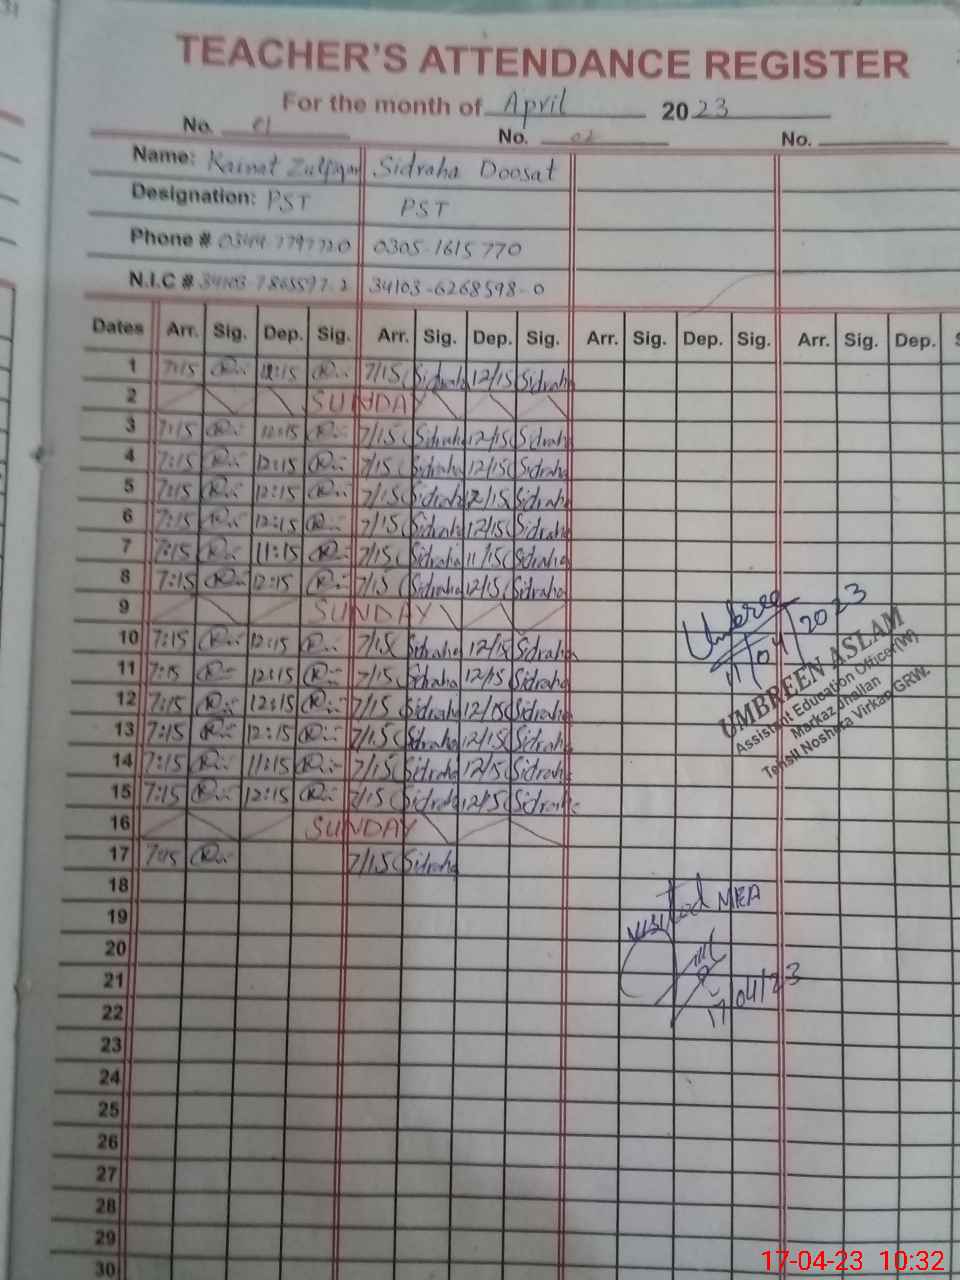 TEACHER'S ATTENDANCE REGISTER
For the month of April 2023
No. 01 No. 02 No.
Name: Kainat Zulfiqar Sidraha Doosat
Designation: PST PST
Phone # 0344-7797720 0305-1615770
N.I.C # 34103-7865597-2 34103-6268598-0
Dates Arr. Sig. Dep. Sig. Arr. Sig. Dep. Sig. Arr. Sig. Dep. Sig. Arr. Sig. Dep.
1 7:15 12:15 7/15 Sidraha 12/15 Sidraha
2 SUNDAY
3 7:15 12:15 7/15 Sidraha 12/15 Sidraha
4 7:15 12:15 7/15 Sidraha 12/15 Sidraha
5 7:15 12:15 7/15 Sidraha 12/15 Sidraha
6 7:15 12:15 7/15 Sidraha 12/15 Sidraha
7 7:15 11:15 7/15 Sidraha 11/15 Sidraha
8 7:15 12:15 7/15 Sidraha 12/15 Sidraha
9 SUNDAY
10 7:15 12:15 7/15 Sidraha 12/15 Sidraha
11 7:15 12:15 7/15 Sidraha 12/15 Sidraha
12 7:15 12:15 7/15 Sidraha 12/15 Sidraha
13 7:15 12:15 7/15 Sidraha 12/15 Sidraha
14 7:15 11:15 7/15 Sidraha 12/15 Sidraha
15 7:15 12:15 7/15 Sidraha 12/15 Sidraha
16 SUNDAY
17 7:15 7/15 Sidraha
18
19
20
21
22
23
24
25
26
27
28
29
30
Umbreen
11/04/2023
UMBREEN ASLAM
Assistant Education Officer(W)
Markaz Jhallan
Tehsil Noshera Virkan GRW.
Visited MEA
17/04/23
17-04-23 10:32